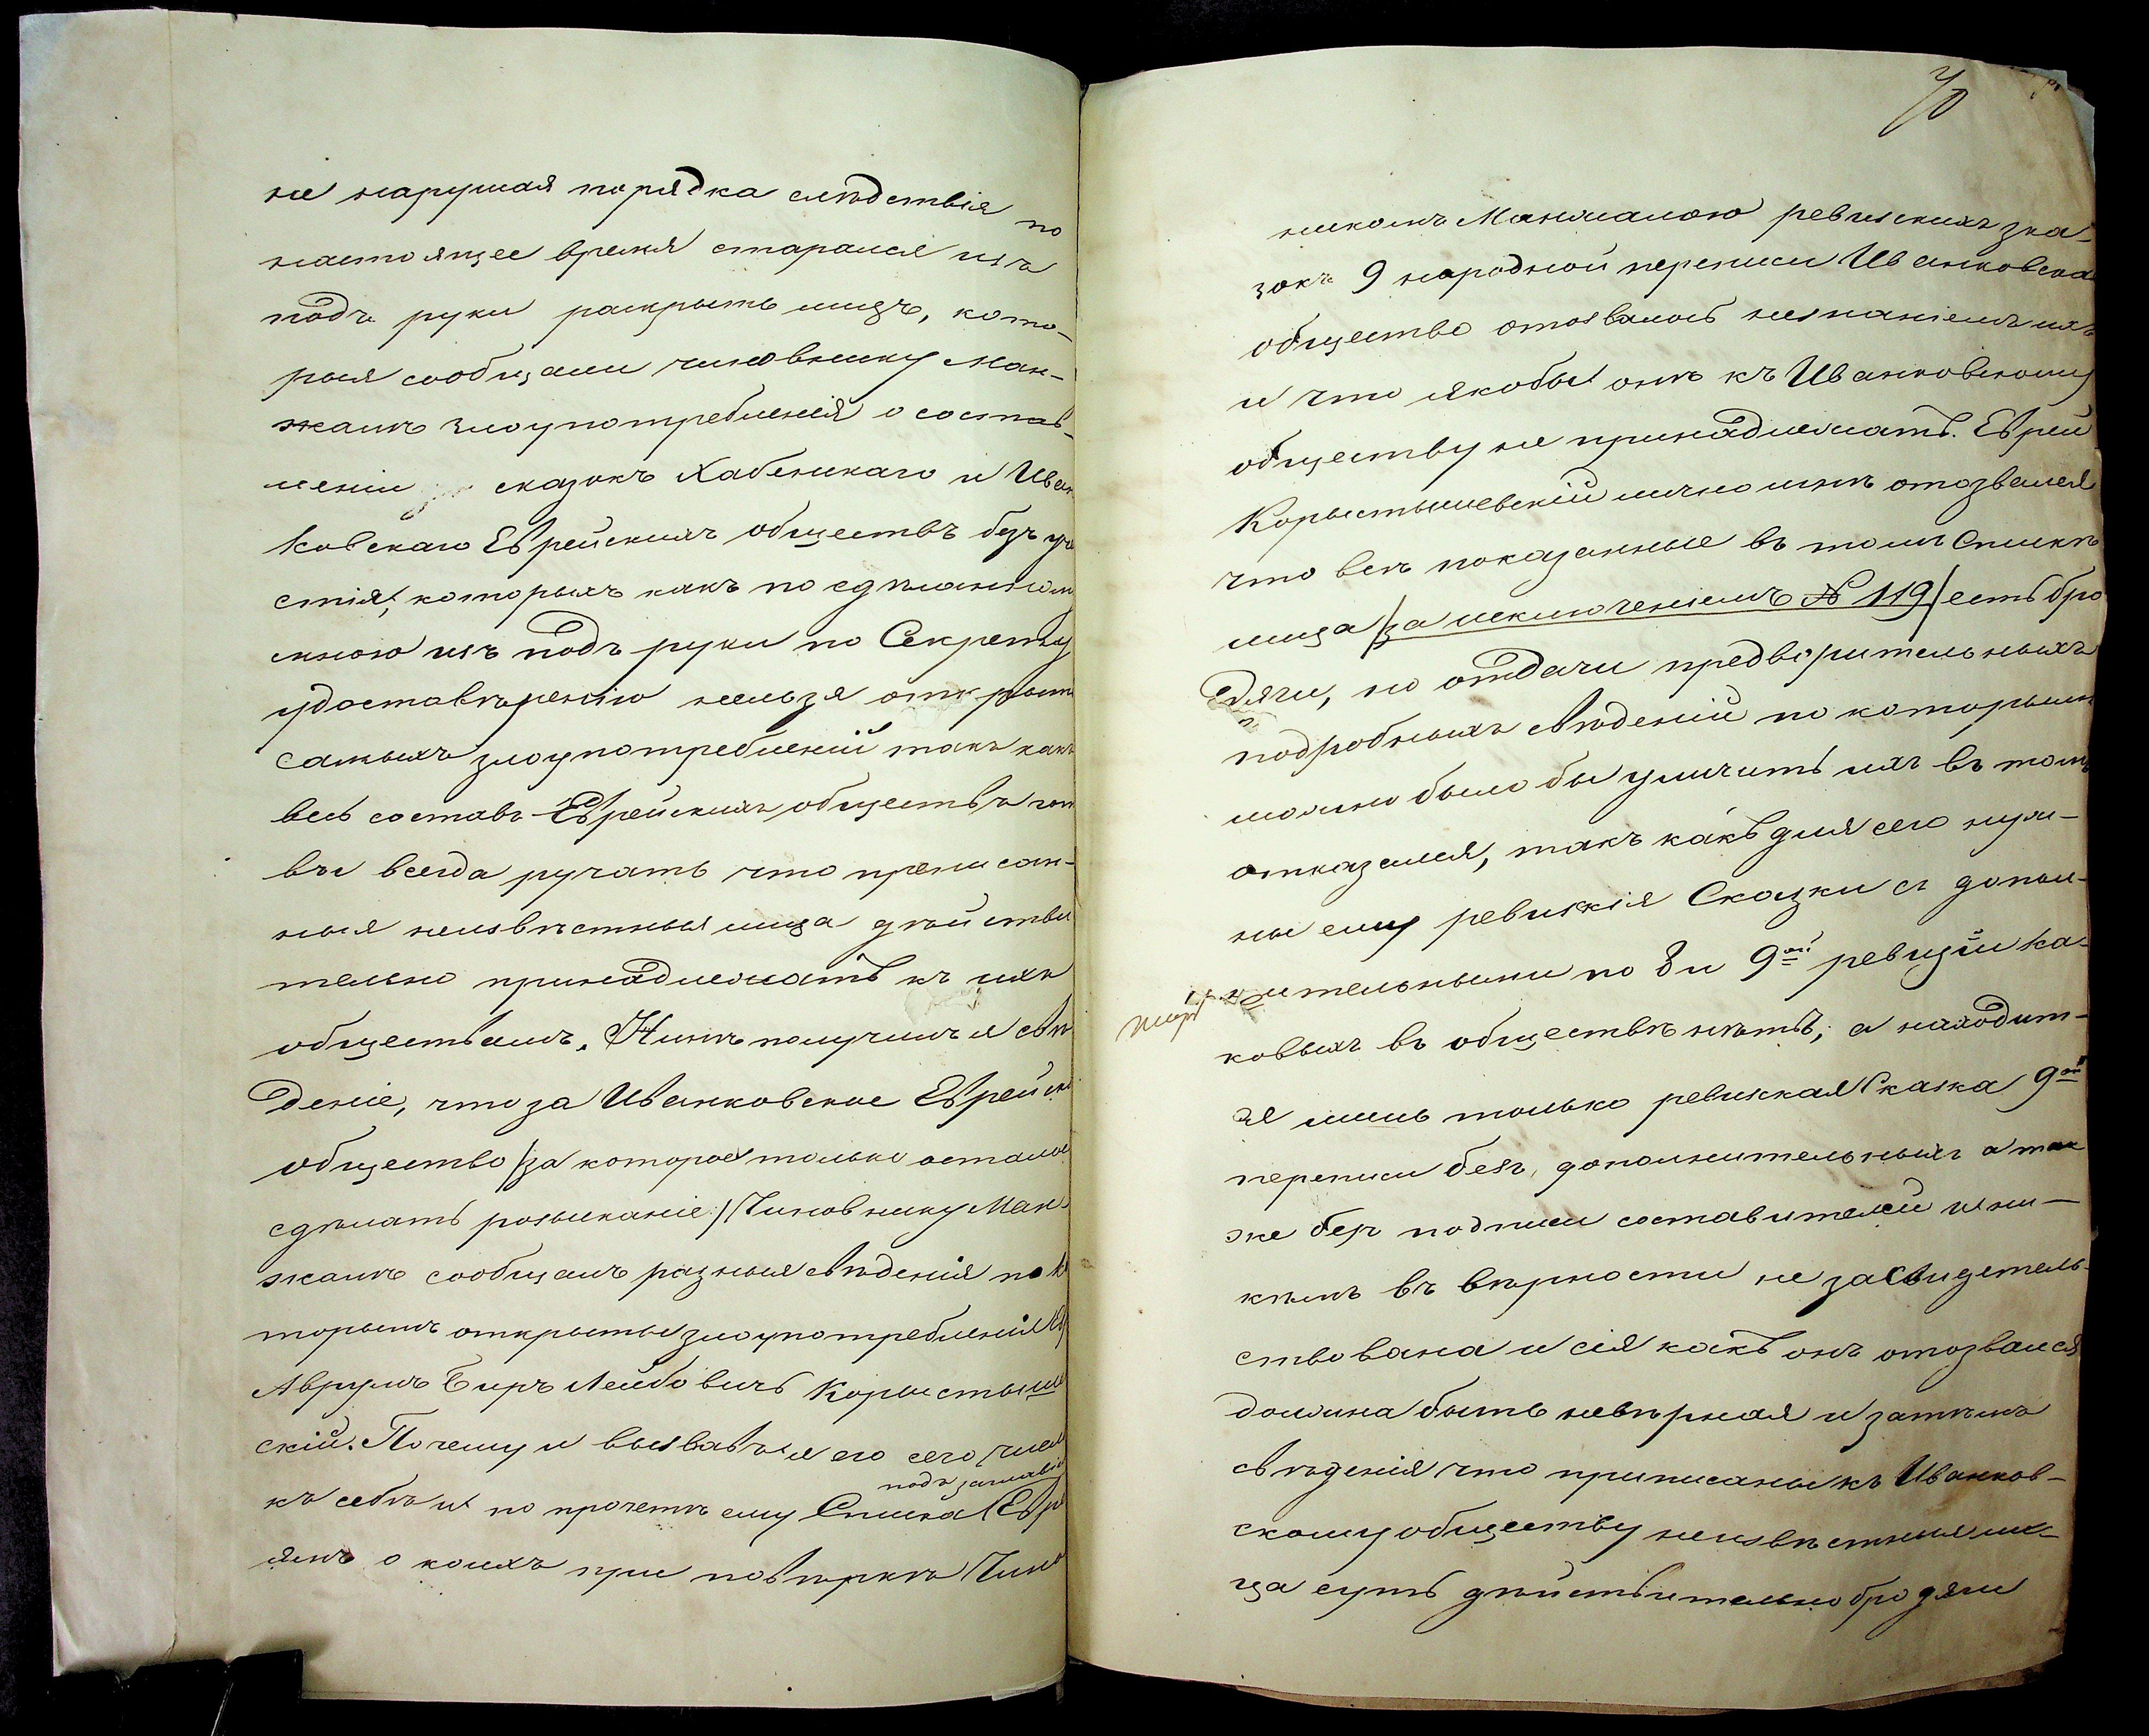 не нарушая порядка слѣдствія по
настоящее время старался изъ
подъ руки раскрыть лицъ, кото-
рыя сообщали чиновнику Ман-
жалѣ злоупотребленія о состав-
леніи сказокъ Хабенскаго и Иван
ковскаго Еврейскихъ обществъ безъ уча
стія, которыхъ какъ по сдѣланном
мною изъ подъ руки по Секрету
удоставѣренію нельзя открыть
самыхъ злоупотребленій такъ какъ
весь составъ Еврейскихъ обществъ гот
вы всегда ручать что преписан-
ныя неизвѣстныя лица дѣйстви
тельно принадлежатъ къ ихъ
обществамъ. Нинѣ получилъ я свѣ
деніе, что за Иванковское Еврейско
общество /за которое только осталос
сдѣлать розысканіе/ Чиновнику Ман-
жалѣ сообщалъ разныя свѣденія по ко
торымъ открыты злоупотребленія
Аврумъ Беръ Лейбовичъ Корыстыше
скій. Почему и вызвавъ я его сего числ
подъ заглавіе
къ себѣ и по прочетѣ ему Списка Евре
ямъ о коихъ при повѣркѣ Чино
70
никомъ Манжалою ревизскихъ зка-
зокъ 9 народной переписи Иванковска
общество отозвалось незнаніемъ ихъ
и что якобы онѣ къ Иванковскому
обществу не принадлежатъ. Еврей
Корыстышевскій лично мнѣ отозвался
что всѣ показанные въ томъ Спискѣ
лица /за исключеніемъ № 119/ есть бро
дяги, но отдачи предворительныхъ
подробныхъ свѣденій по которымъ
можно было бы уличить ихъ въ томъ
отказался, такъ какъ для сего нуж-
ны ему ревизкія Сказки съ допол-
нительными по 8 и 9ой ревизіи ка-
ковыхъ въ обществѣ нѣтъ, а находит-
ся лишь только ревизкая Сказка 9ой
переписи безъ дополнительныхъ а так
же безъ подписи составителей и ни-
кѣмъ въ вѣрности не засвидетель-
ствована и сія какъ онъ отозвался
должна быть невѣрная и затѣмъ
свѣденія что приписаны къ Иванков-
скому обществу неизвѣстныя ли-
ца суть дѣйствительно бродяги